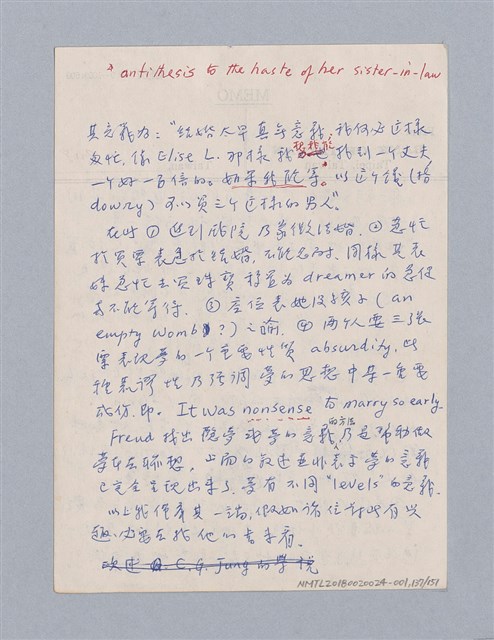 antithesis to the haste of her sister-in-law
其意義為："結婚太早真無意義,我何必這樣
匆忙,像 Elise L. 那樣我也找到一个丈夫
一个好一百倍的。如果我能等。以這个錢(指
dowry)可以買三个這樣的男人"。
在此 ① 進到戲院乃象徵結婚, ② 急忙
於買票表過於結婚,
妹急忙去買珠寶移置為 dreamer 的急促
 ③ 座位表她沒孩子 ( an
empty womb ?) 之喻. ④ 兩个人要三張
票表現夢的一个重要性質 absurdity, 此
種荒謬性乃強調夢的思想中某一重要
成份,即. It was nonsense to marry so early.
Freud 找出隱夢或夢的意義的方法,乃是幫助做
夢者去聯想, 上面的敘述並非表示夢的意義
已完全呈現出來了,夢有不同 "levels" 的意義.
以上我僅希其一端,假如諸位
趣,
C. G. Jung 的學說
NMTL20180020024-001,137/151